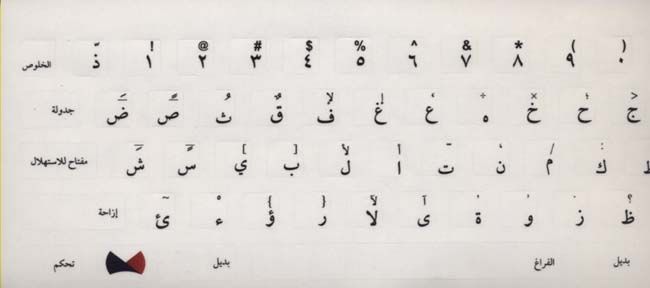 ! @ # $ % ^ & * ( )
الخلوص ذّ ١ ٢ ٣ ٤ ٥ ٦ ٧ ٨ ٩ ٠
لإ إ ‘ ÷ × ؛ >
جدولة ضَ صً ثُ قٌ ف غ ع ه خ ح ج
] [ لأ أ ـ ، / :
مفتاح للاستهلال ش س ي ب ل ا ت ن م ك ط
~ ْ { } لآ آ ' , . ؟
إزاحة ئ ء ؤ ر لا ى ة و ز ظ
تحكم بديل الفراغ بديل